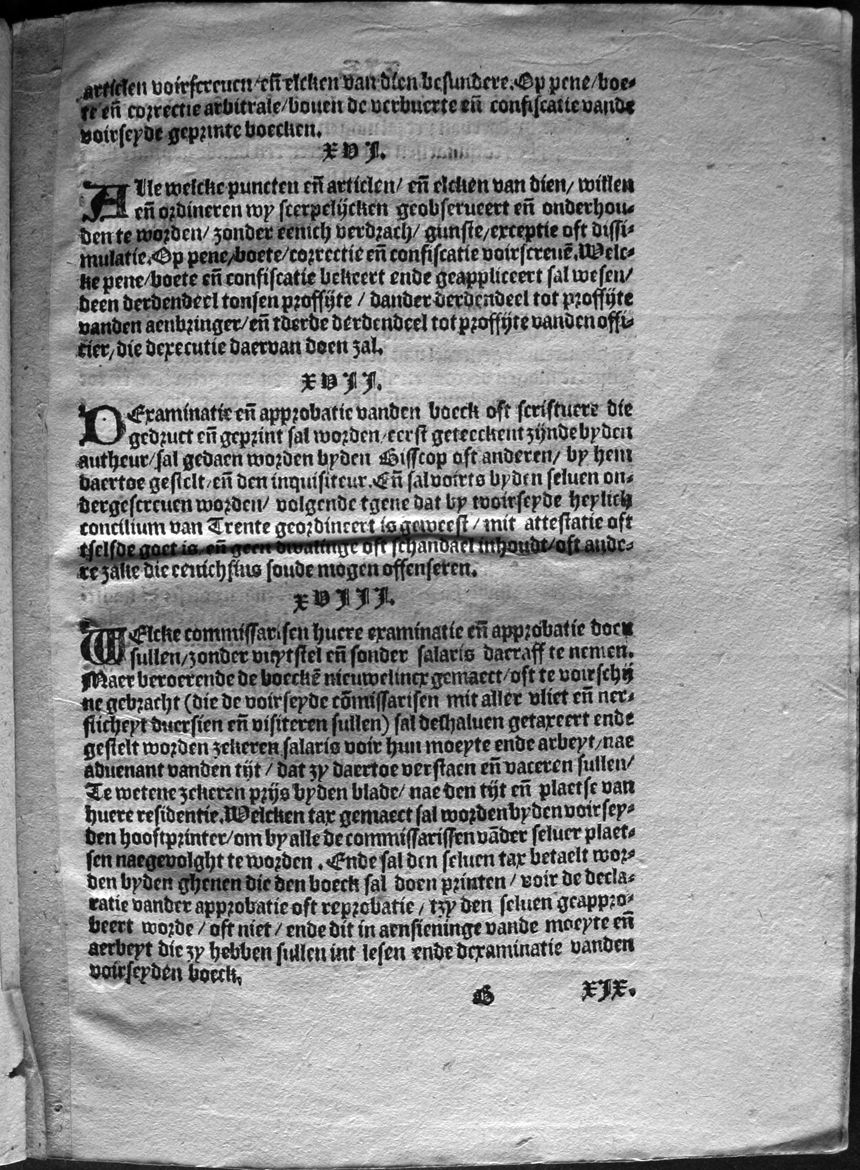 articlen voirscreuen/eñ elcken van dien besundere. Op pene/boe-
te eñ correctie arbitrale/bouen de verbuerte eñ confiscatie vande
voirseyde geprinte boecken.
XVI.
Alle welcke puncten eñ articlen/ eñ elcken van dien/ willen
eñ ordineren wy scerpelijcken geobserueert eñ onderhou-
den te worden/ zonder eenich verdrach/ gunste/exceptie oft dissi-
mulatie. Op pene/boete/correctie eñ confiscatie voirscreuē. Welc-
ke pene/boete eñ confiscatie bekeert ende geappliceert sal wesen/
deen derdendeel tonsen proffijte / dander derdendeel tot proffijte
vanden aenbringer/eñ tderde derdendeel tot proffijte vanden offi-
cier/die dexecutie daervan doen zal.
XVII.
DExaminatie eñ approbatie vanden boeck oft scriftuere die
gedruct eñ geprint sal worden/eerst geteeckent zijnde byden
autheur/sal gedaen worden byden Bisscop oft anderen/ by hem
daertoe gestelt/eñ den inquisiteur. Eñ sal voirts byden seluen on-
dergescreuen worden/ volgende tgene dat by tvoirseyde heylich
concilium van Trente geordineert is geweest/ mit attestatie oft
tselfde goet is, eñ geen dwalinge oft schandael inhoudt/oft ande-
re zake die eenichsins soude mogen offenseren.
XVIII.
WElcke commissarisen huere examinatie eñ approbatie doen
sullen/zonder vuytstel eñ sonder salaris daeraff te nemen.
Maer beroerende de boeckē nieuwelincx gemaect/oft te voirschij
ne gebracht (die de voirseyde cōmissarisen mit aller vliet eñ ner-
sticheyt duersien eñ visiteren sullen) sal deshaluen getaxeert ende
gestelt worden zekeren salaris voir hun moeyte ende arbeyt/nae
aduenant vanden tijt / dat zy daertoe verstaen eñ vaceren sullen/
Te wetene zekeren prijs byden blade/ nae den tijt eñ plaetse van
huere residentie. Welcken tax gemaect sal worden byden voirsey-
den hooftprinter/om by alle de commissarissen vāder seluer plaet-
sen naegevolght te worden . Ende sal den seluen tax betaelt wor-
den byden ghenen die den boeck sal doen printen / voir de decla-
ratie vander approbatie oft reprobatie / tzy den seluen geappro-
beert worde / oft niet / ende dit in aensieninge vande moeyte eñ
aerbeyt die zy hebben sullen int lesen ende dexaminatie vanden
voirseyden boeck.
G XIX.